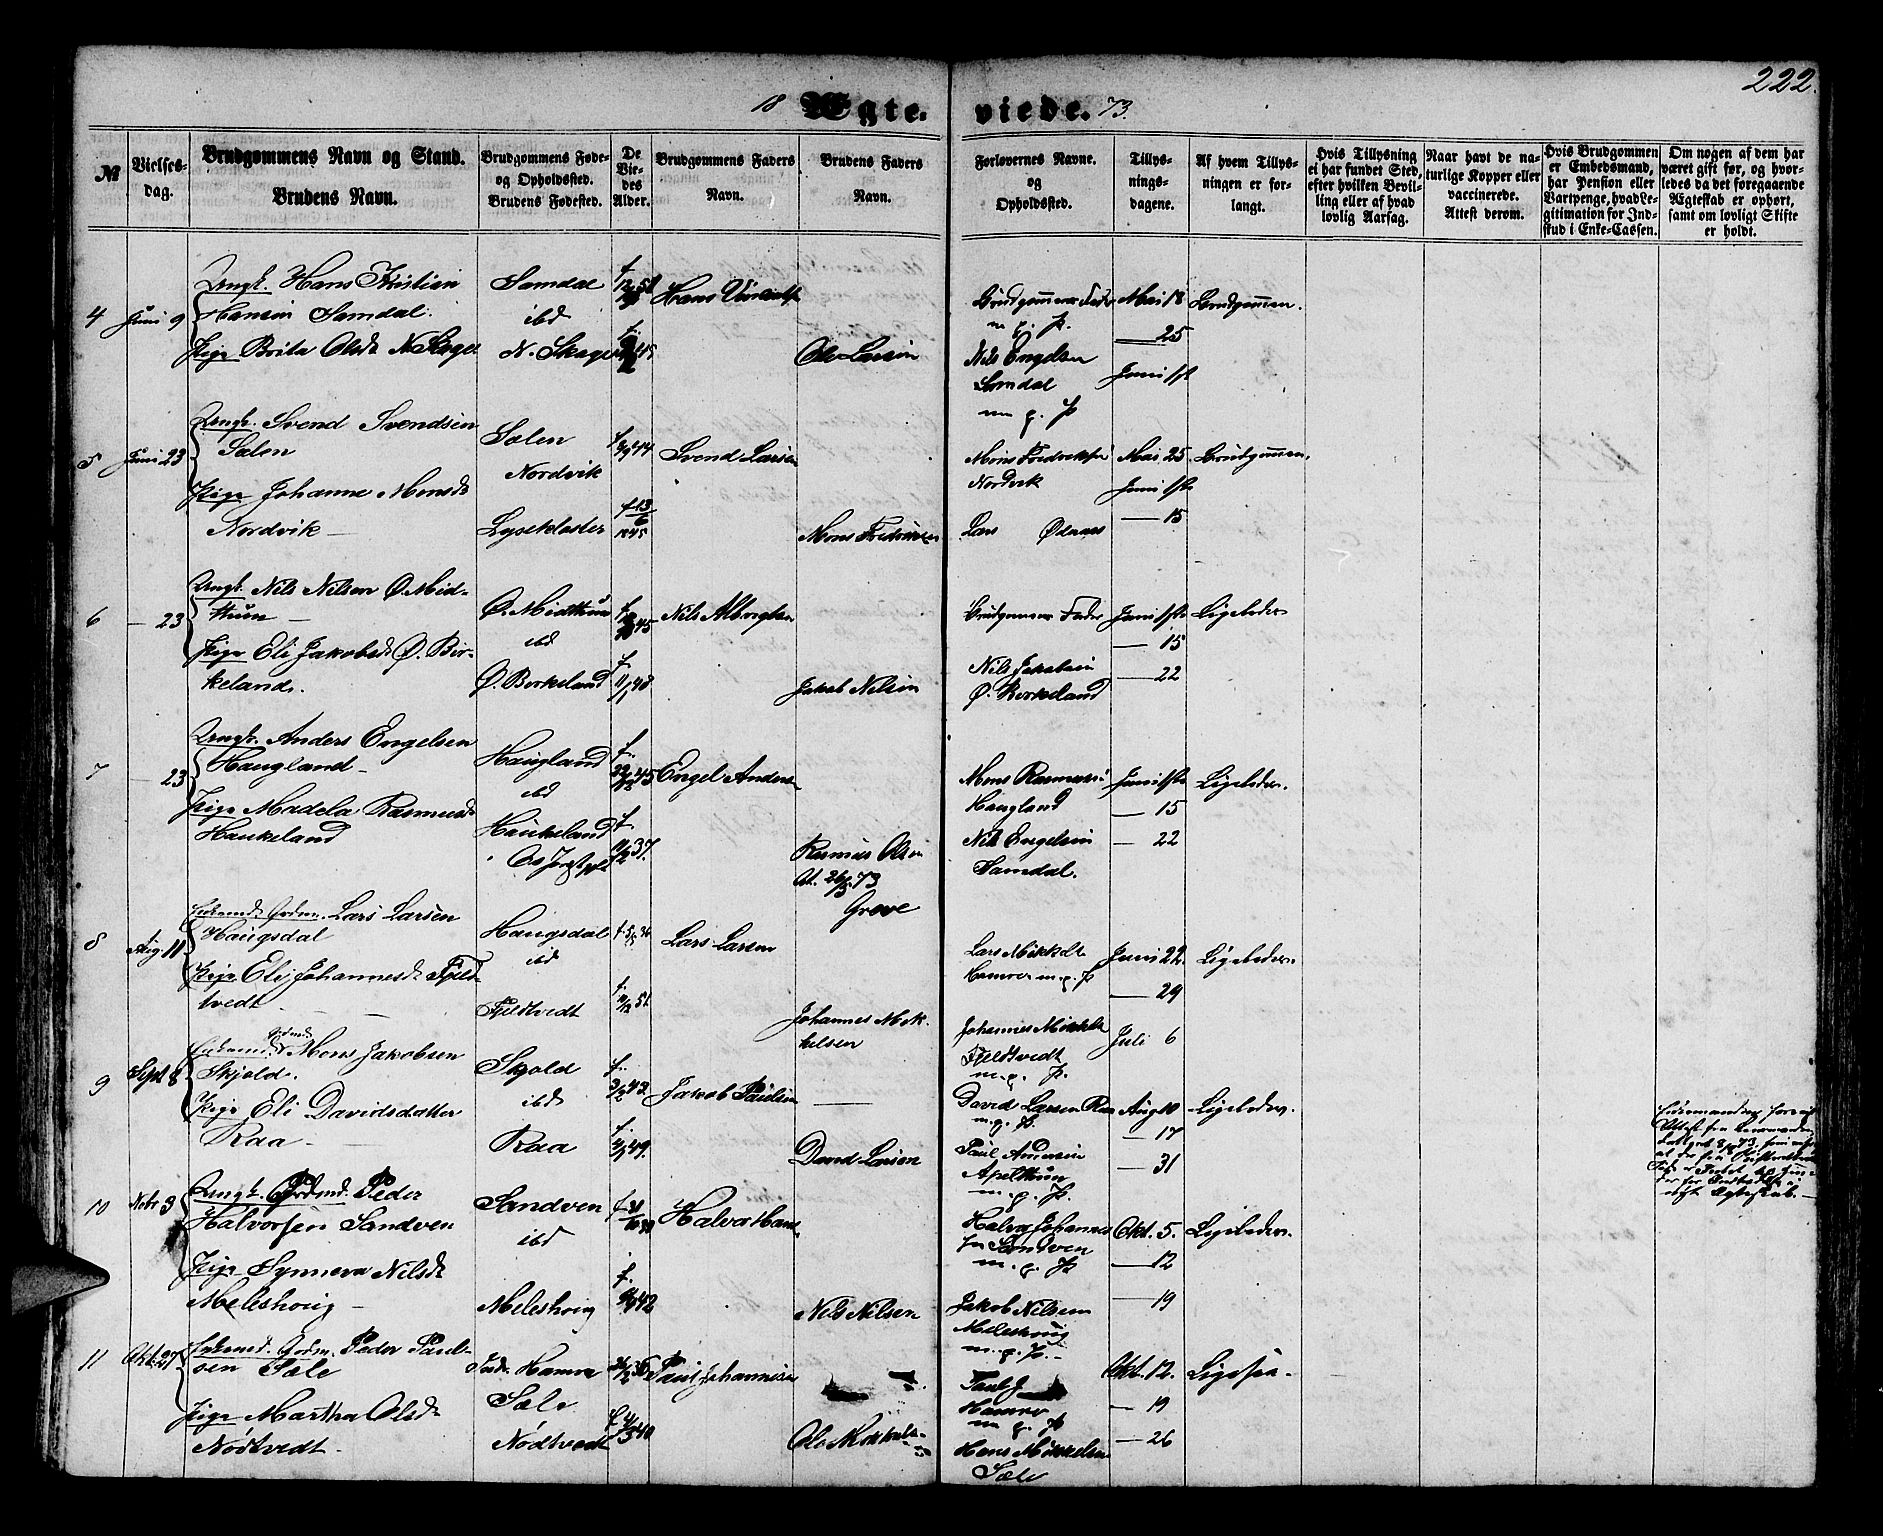 222.
18 Ægte- viede. 73.
№
Vielses-
dag.
Brudgommens Navn og Stand.
Brudens Navn.
Brudgommens Føde-
og Opholdssted.
Brudens Fødested.
De
Vie-
des
Alder.
Brudgommens Faders
Navn.
Brudens Faders
Navn.
Forlovernes Navne.
og
Opholdssted.
Tillys-
nings-
dagene.
Af hvem Tillys-
ningen er for-
langt.
Hvis Tillysning
ei har fundet Sted,
efter hvilken Bevil-
ling eller af hvad
lovlig Aarsag.
Naar havt de na-
turlige Kopper eller
vaccinerede.
Attest derom.
Hvis Brudgommen
er Embedsmand,
har Pension eller
Vartpenge, hvad Le-
gitimation for Ind-
skud i Enke-Cassen.
Om nogen af dem har
været gift før, og hvor-
ledes da det foregaaende
Ægteskab er ophørt,
samt om lovligt Skifte
er holdt.
4 Juni 9
Ungk. Hans Kristian
Hansen Samdal.
Pige Brita Olsdr N. Skage
Samdal
ibd
N. Skage
Ole Larsen
Brudgommens Fader
m. p. P.
Nils Engelsen
Samdal
m. p. P
Mai 18
— 25
Juni 1ste
Brudgommen.
5 Juni 23
Ungk. Svend Svendsen
Sælen
Pige Johanne Monsdr
Nordvik —
Sælen
Nordvik
Lysekloster
f 13/6 1845
Svend Larsen
Mons Fredriksen
Nordvik
Lars
Mai 25
Juni 1ste
— 15
Brudgommen.
6 — 23
Ungk. Nils Nilsen Ø. Mid-
tthun —
Pige Eli Jakobsdr Ø. Bir-
keland.
Ø. Midtthun
ibd
Ø. Birkeland
f. 11/1 48
Jakob Nilsen
Brudgommens Fader
Nils Jakobsen
Ø. Birkeland
Juni 1ste
— 15
— 22
Ligeledes
7 — 23
Ungk. Anders Engelsen
Haugland —
Pige Madela Rasmusdr
Haukeland
Haugland
ibd
Haukeland
Engel Anders
Rasmus Olsen
At. 26/5 73
Greve
Mons Rasmussen
Haugland
Nils Engelsen
Samdal.
Juni 1ste
— 15
— 22
Ligeledes.
8 Aug. 11
Enkemd. Grdm. Lars Larsen
Haugsdal
Pige Eli Johannesdr Fjeld-
tvedt
Haugsdal
ibd
Fjeldtvedt
Lars Larsen
Johannes Mik-
kelsen
Hamre m. p. P
Johannes Mikkels
Fjeldtvedt
m. p. P.
Juni 22.
— 29
Juli 6
Ligeledes.
9 Sept 8
Mons Jakobsen
Skjold.
Pige Eli Davidsdatter
Raa —
Skjold
ibd
Raa
Jakob Paulsen
David Larsen
David Larsen Raa
m. p. P.
Paul Andersen
Apeltthun
m. p. P.
Aug 10
— 17
— 31
Ligeledes.
10 Nobr 3
Ungk. Grdmd. Peder
Halvorsen Sandven
Pige Synneva Nilsdr
Meleshoug —
Sandven
ibd
Meleshoug
Halvor Hans
Nils Nilsen
Halvor Johannes-
sen Sandven
m. p. P
Jakob Nilsen
Meleshoug
m. p. P. —
Okt. 5.
— 12
— 19
Ligeledes.
11 Okt. 27
Enkemd. Grdm. Peder Pauls-
sen Sæle
Pige Martha Olsdr
Nødtvedt —
Født Hamre
Sæle
Nødtvedt
Paul Johannesen
Ole Mikkels-
en
Paul J
Hamre
m. p. P
Hans Mikkelsen
Sæle
Okt. 12.
— 19
— 26
Ligesaa.